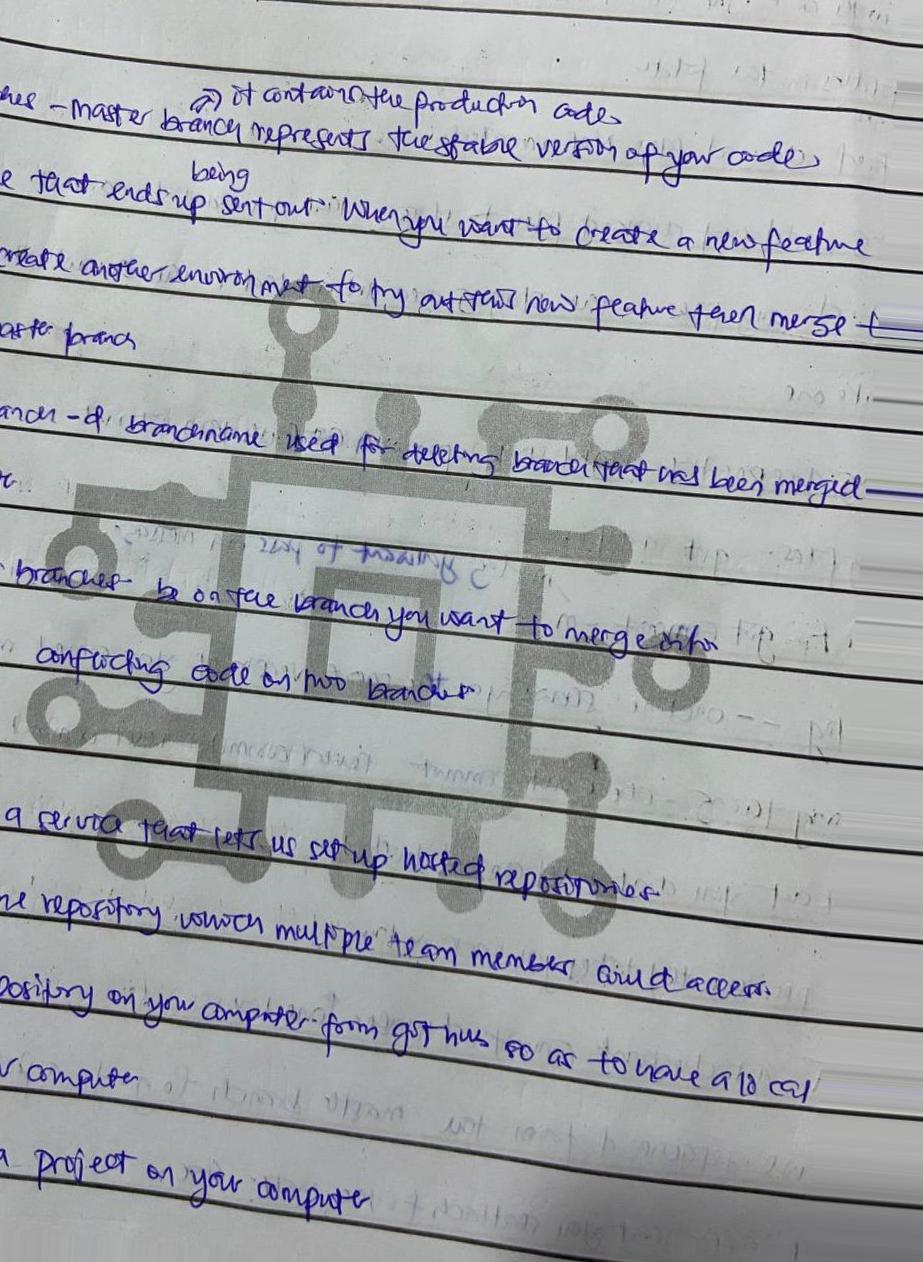 it contains the production codes
- master branch represents the stable version of your codes
being
e that ends up sent out. When you want to create a new feature
create another environment to try out this new feature then merge t
branch
-d branchname used for deleting branch that has been merged
branches - be on the branch you want to merge onto
conflicting code on two branches
a service that lets us set up hosted repositories
repository which multiple team members could access.
on your computer from github so as to have a local
computer
project on your computer